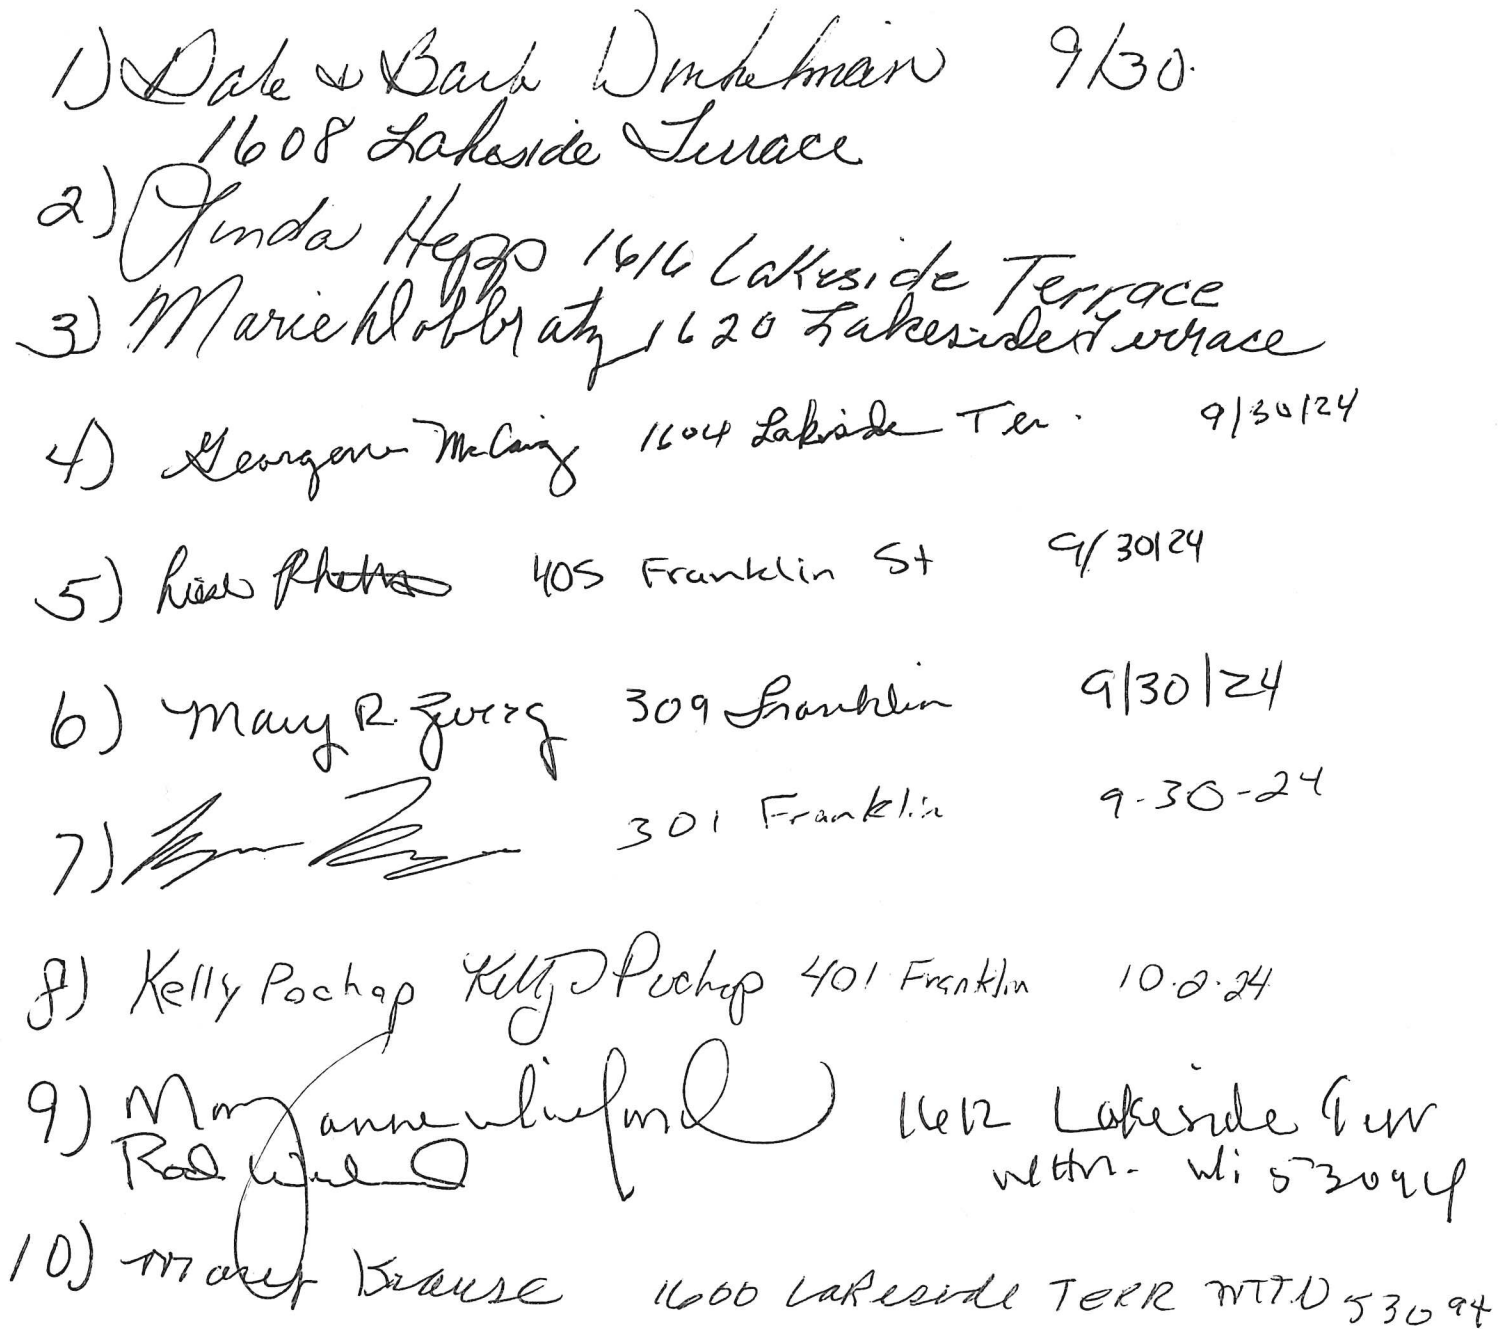 1) Dale & Barb Winkelman 9/30
1608 Lakeside Terrace
2) Linda Hepp 1616 Lakeside Terrace
3) Marie Dobbratz 1620 Lakeside Terrace
4) Georgene McCaig 1604 Lakeside Ter. 9/30/24
5) 405 Franklin St 9/30/24
6) Mary R. Zwieg 309 Franklin 9/30/24
7) 301 Franklin 9-30-24
8) Kelly Pochap Kelly Pochap 401 Franklin 10.2.24
9) Mary anne 1612 Lakeside Terr
Rod Wtn. Wi 53094
10) Mary Krause 1600 Lakeside TERR WTTN 53094